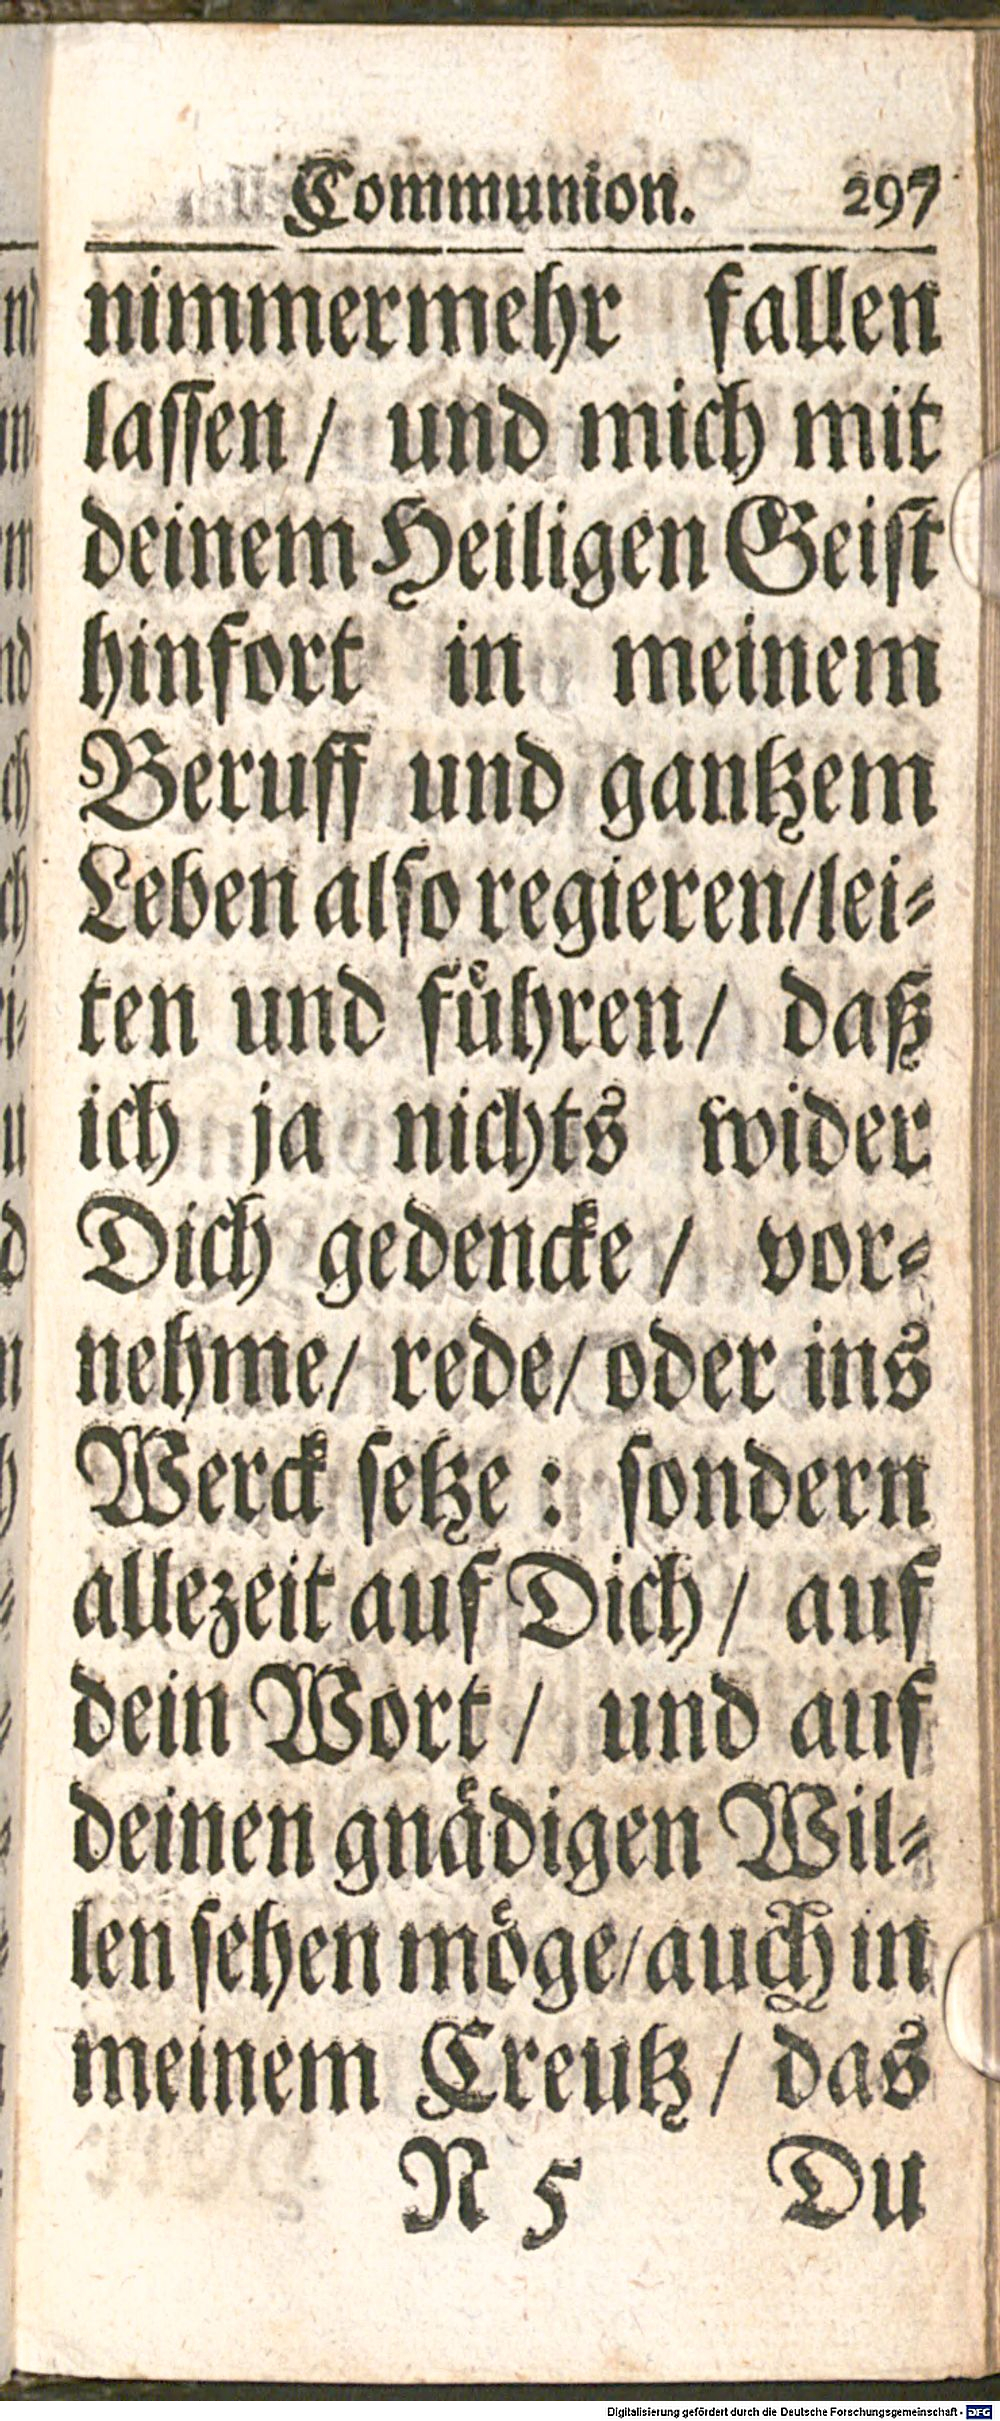 Communion. 297
nimmermehr fallen
lassen / und mich mit
deinem Heiligen Geist
hinfort in meinem
Beruff und gantzem
Leben also regieren/lei-
ten und führen/ daß
ich ja nichts wider
Dich gedencke / vor-
nehme/ rede/ oder ins
Werck setze : sondern
allezeit auf Dich / auf
dein Wort / und auf
deinen gnädigen Wil-
len sehen möge/auch in
meinem Creutz / das
N 5 Du
Digitalisierung gefördert durch die Deutsche Forschungsgemeinschaft - DFG